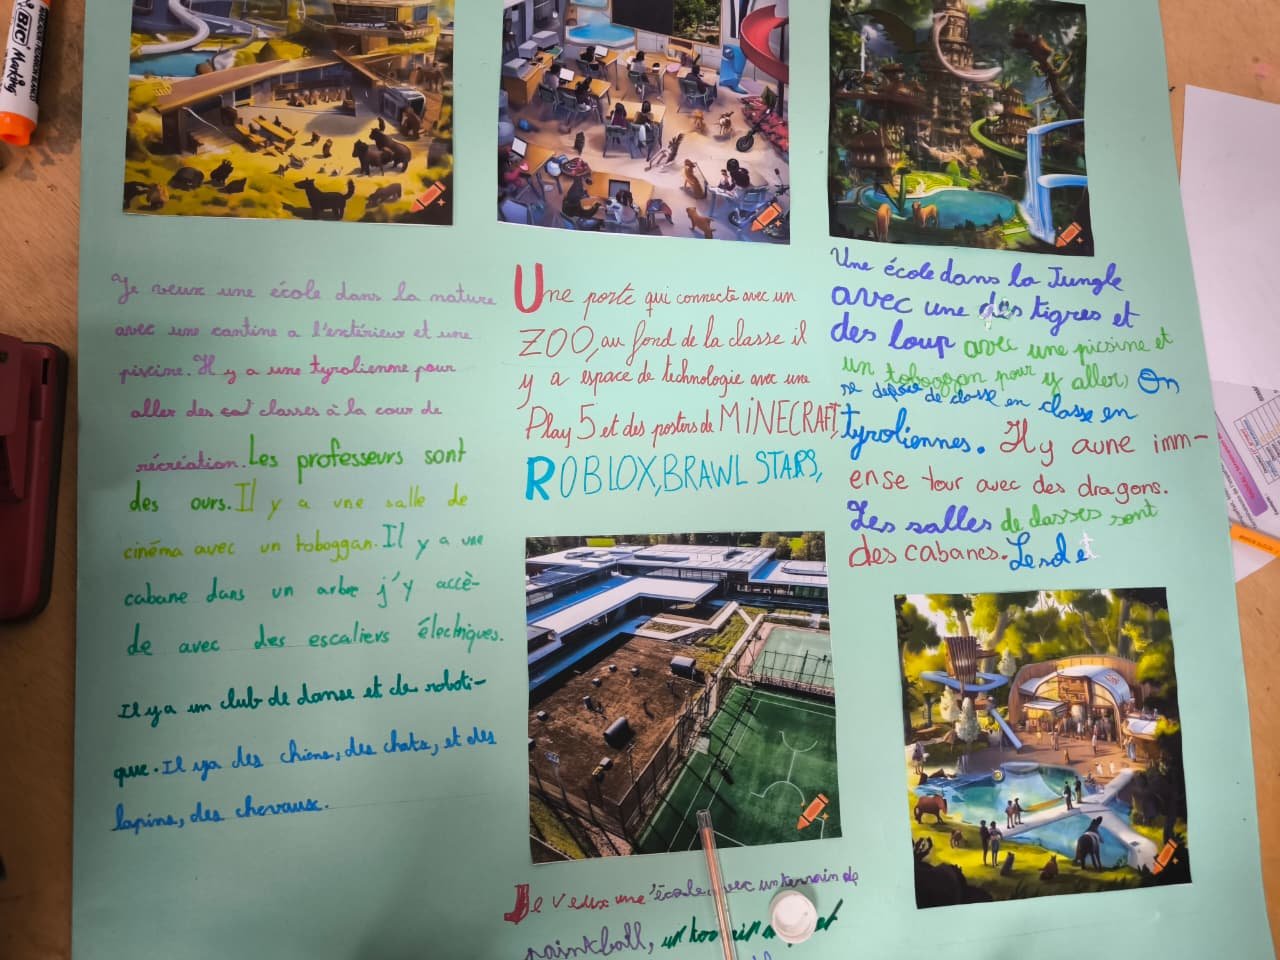 BIC
Marking
Je veux une école dans la nature
avec une cantine a l'extérieur et une
piscine. Il y a une tyrolienne pour
aller des classes à la cour de
récréation. Les professeurs sont
des ours. Il y a une salle de
cinéma avec un toboggan. Il y a une
cabane dans un arbre j'y accè-
de avec des escaliers électriques.
Il y a un club de danse et de roboti-
que. Il ya des chiens, des chats, et des
lapins, des chevaux.
Une porte qui connecte avec un
ZOO, au fond de la classe il
y a espace de technologie avec une
Play 5 et des posters de MINECRAFT,
ROBLOX, BRAWL STARS,
Je veux une école avec un terrain de
paintball, un
Une école dans la Jungle
avec une des tigres et
des loup avec une picsine et
un toboggan pour y aller, On
se déplace de classe en classe en
tyroliennes. Il y aune imm-
ense tour avec des dragons.
Les salles de classes sont
des cabanes.